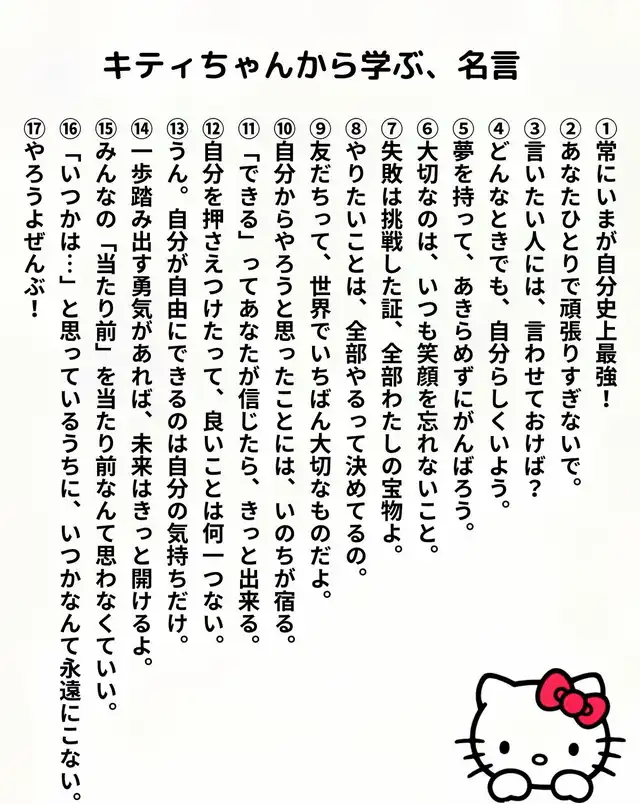 キティちゃんから学ぶ、名言
①常にいまが自分史上最強！
②あなたひとりで頑張りすぎないで。
③言いたい人には、言わせておけば？
④どんなときでも、自分らしくいよう。
⑤夢を持って、あきらめずにがんばろう。
⑥大切なのは、いつも笑顔を忘れないこと。
⑦失敗は挑戦した証、全部わたしの宝物よ。
⑧やりたいことは、全部やるって決めてるの。
⑨友だちって、世界でいちばん大切なものだよ。
⑩自分からやろうと思ったことには、いのちが宿る。
⑪「できる」ってあなたが信じたら、きっと出来る。
⑫自分を押さえつけたって、良いことは何一つない。
⑬うん。自分が自由にできるのは自分の気持ちだけ。
⑭一歩踏み出す勇気があれば、未来はきっと開けるよ。
⑮みんなの「当たり前」を当たり前なんて思わなくていい。
⑯「いつかは…」と思っているうちに、いつかなんて永遠にこない。
⑰やろうよぜんぶ！